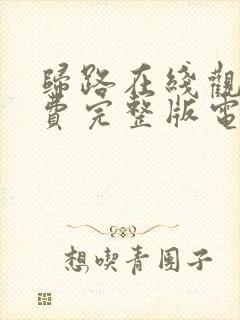 歸路在綫觀
費完整版電
想喫青團子